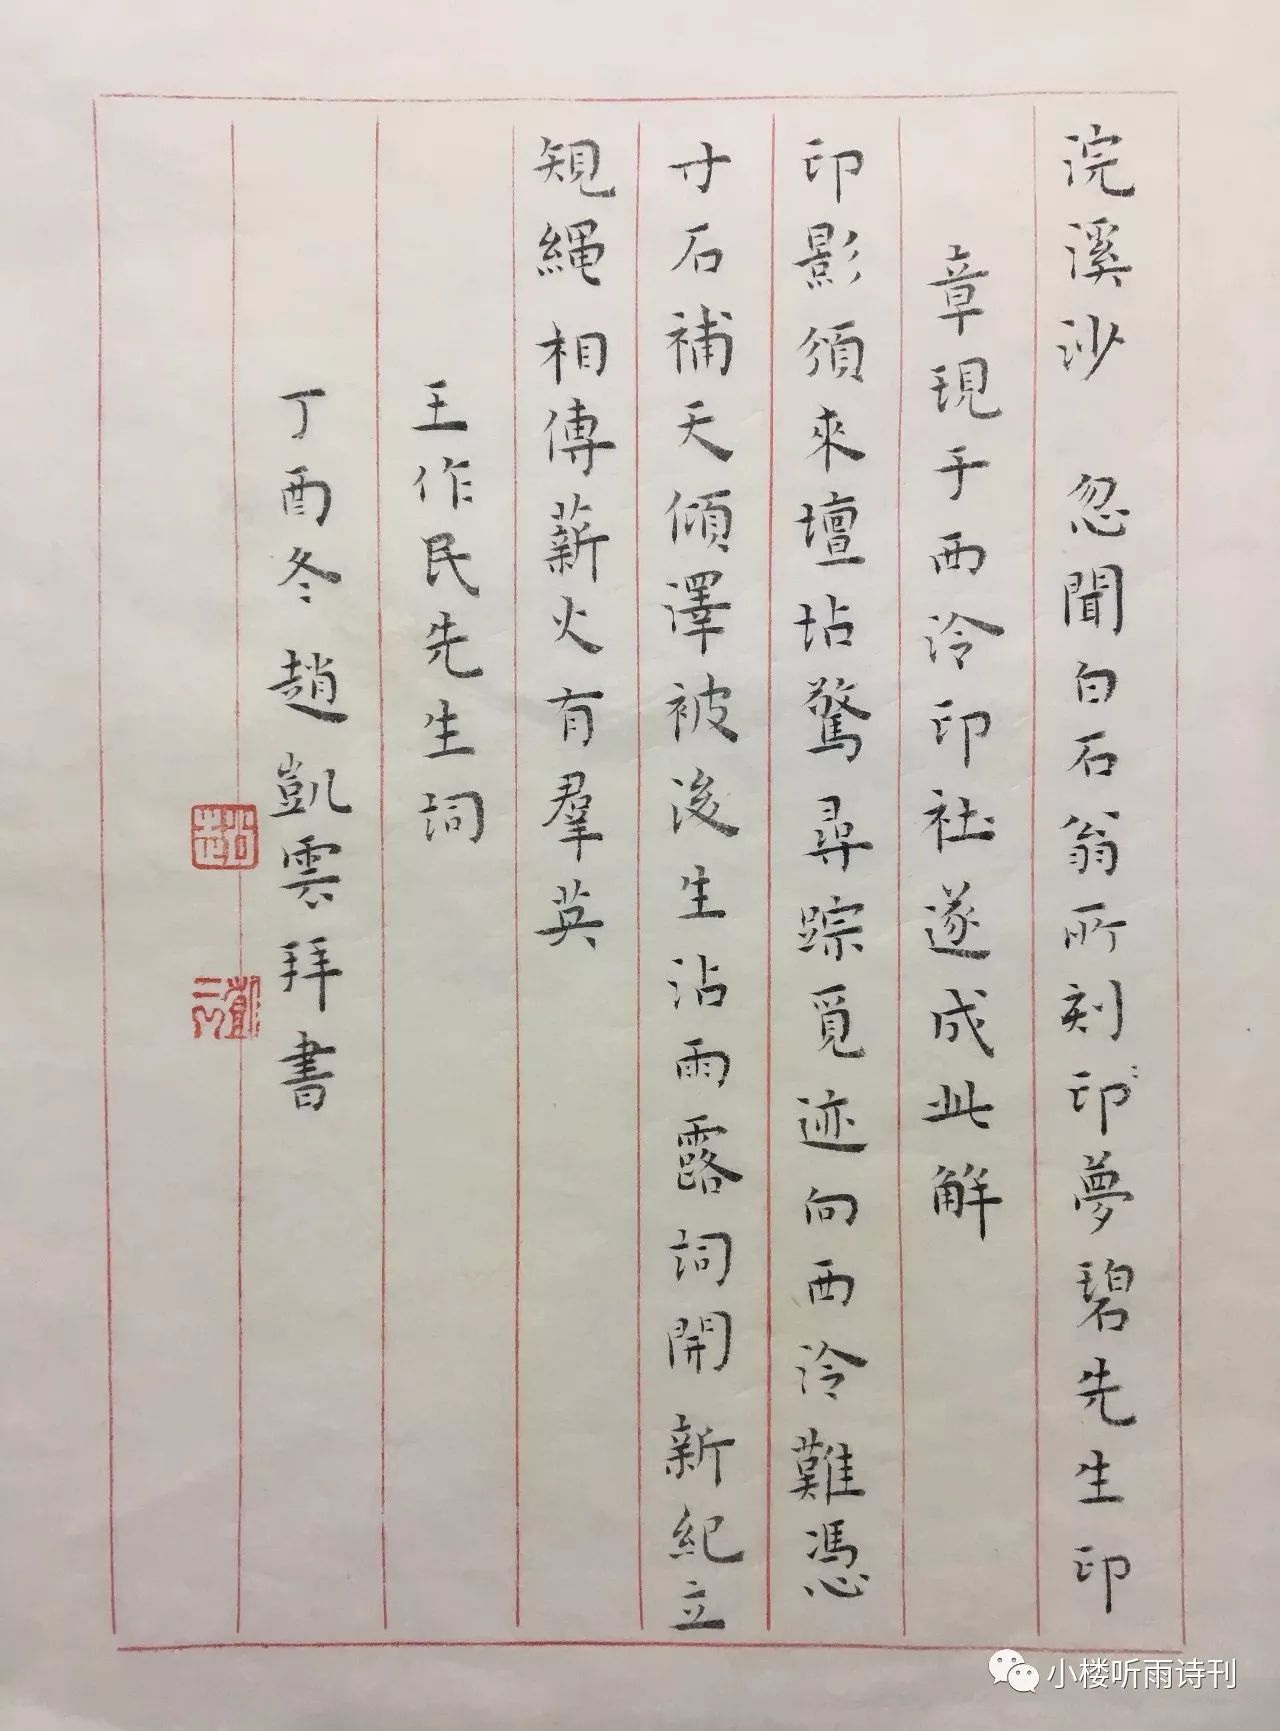 浣溪沙 忽聞白石翁所刻印夢碧先生印
章現于西泠印社遂成此解
印影須來壇坫驚尋踪覓迹向西泠難憑
寸石補天傾澤被後生沾雨露詞開新紀立
規繩相傳薪火有羣英
王作民先生詞
丁酉冬趙凱雲拜書
小楼听雨诗刊